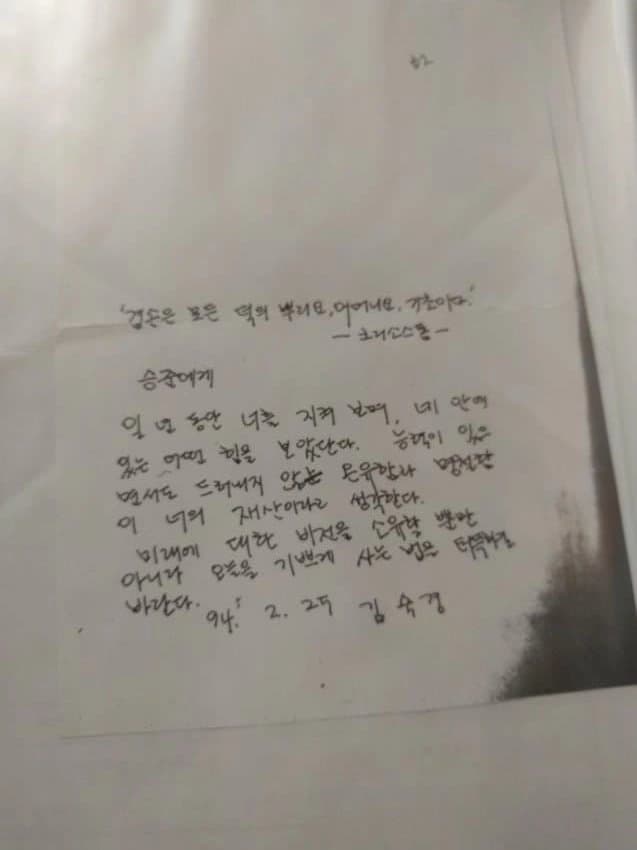 '겸손은 모든 덕의 뿌리요, 어머니요, 기초이다.'
- 크리소스톰 -
승준에게
일 년 동안 너를 지켜 보며, 네 안에
있는 어떤 힘을 보았단다. 능력이 있으
면서도 드러내지 않는 온유함과 명철함
이 너의 재산이라고 생각한다.
미래에 대한 비전을 소유할 뿐만
아니라 오늘을 기쁘게 사는 법을 터득하길
바란다.
94. 2. 25 김숙경